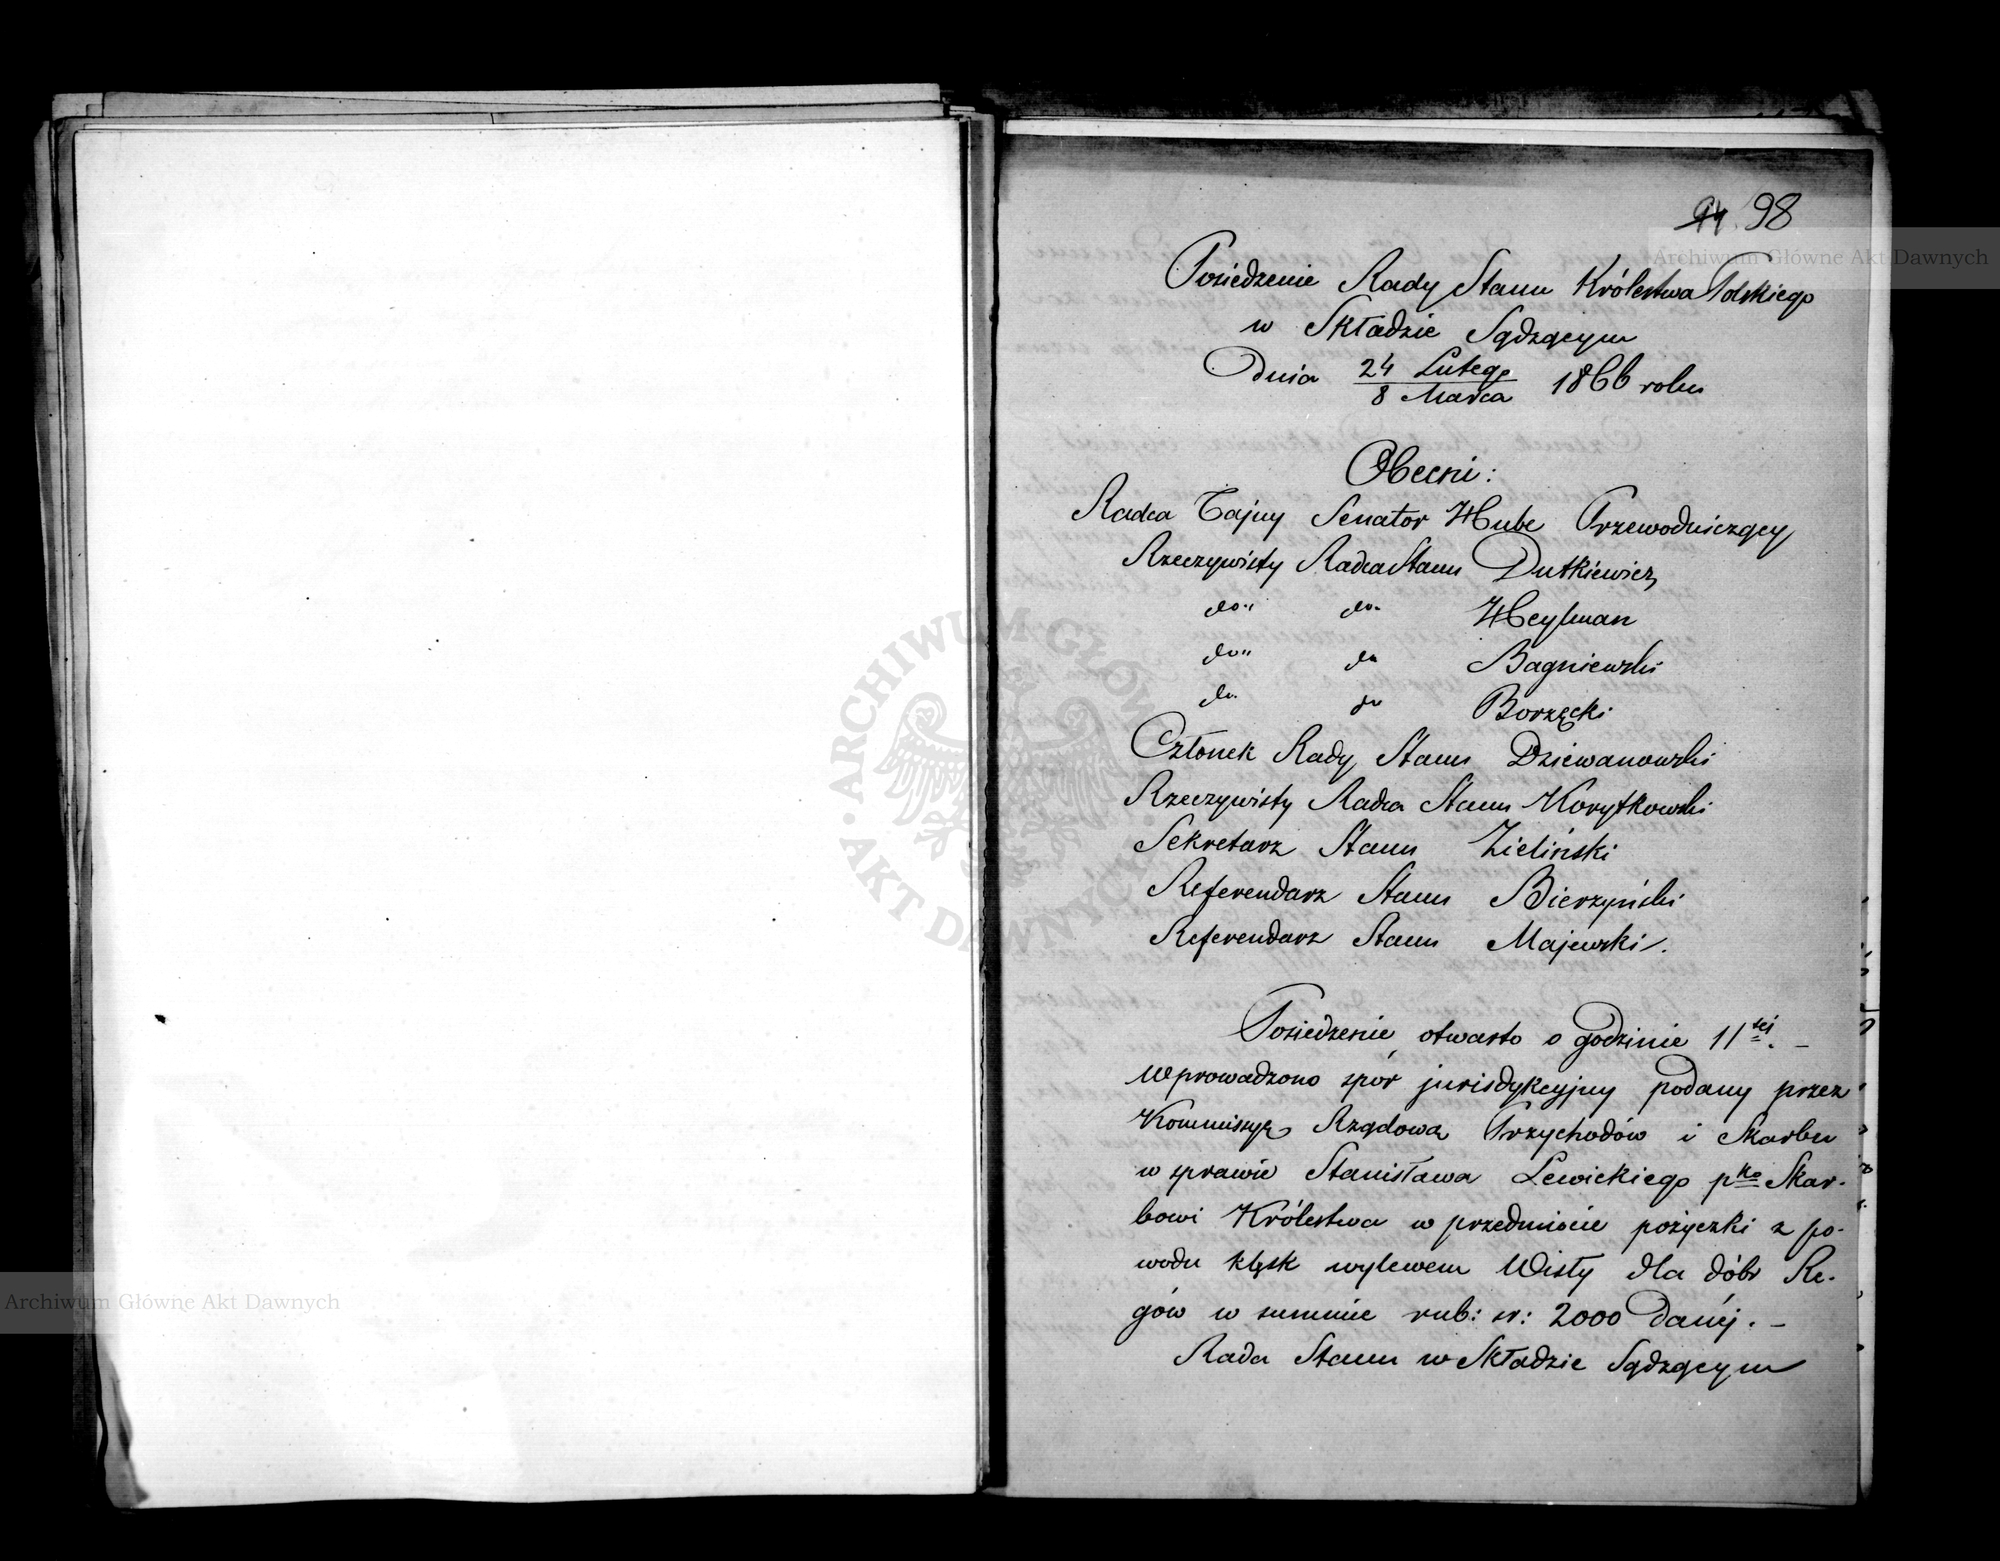 94 98
Posiedzenie Rady Stanu Królestwa Polskiego
w Składzie Sądzącym
Dnia 24 Lutego / 8 Marca 1866 roku
Obecni:
Radca Tajny Senator Hube Przewodniczący
Rzeczywisty Radca Stanu Dutkiewicz
do" do. Heylman
do" do Bagniewski
do. do Borzęcki
Członek Rady Stanu Dziewanowski
Rzeczywisty Radca Stanu Korytkowski
Sekretarz Stanu Zieliński
Referendarz Stanu Bierzyński
Referendarz Stanu Majewski.
Posiedzenie otwarto o godzinie 11tej. –
Wprowadzono spór jurisdykcyjny podany przez
Kommissyę Rządową Przychodów i Skarbu
w sprawie Stanisława Lewickiego pko Skar-
bowi Królestwa w przedmiocie pożyczki z po-
wodu klęsk wylewem Wisły dla dóbr Re-
gów w summie rub: sr: 2000 danéj. –
Rada Stanu w Składzie Sądzącym
Archiwum Główne Akt Dawnych
Archiwum Główne Akt Dawnych
ARCHIWUM GŁÓWNE AKT DAWNYCH